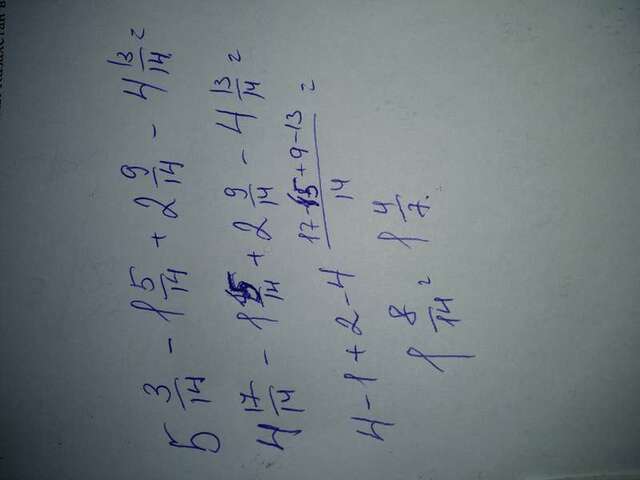 5 3/14 - 1 5/14 + 2 9/14 - 4 13/14 =
4 17/14 - 1 5/14 + 2 9/14 - 4 13/14 =
4 - 1 + 2 - 4 (17 - 5 + 9 - 13)/14 =
1 8/14 = 1 4/7.